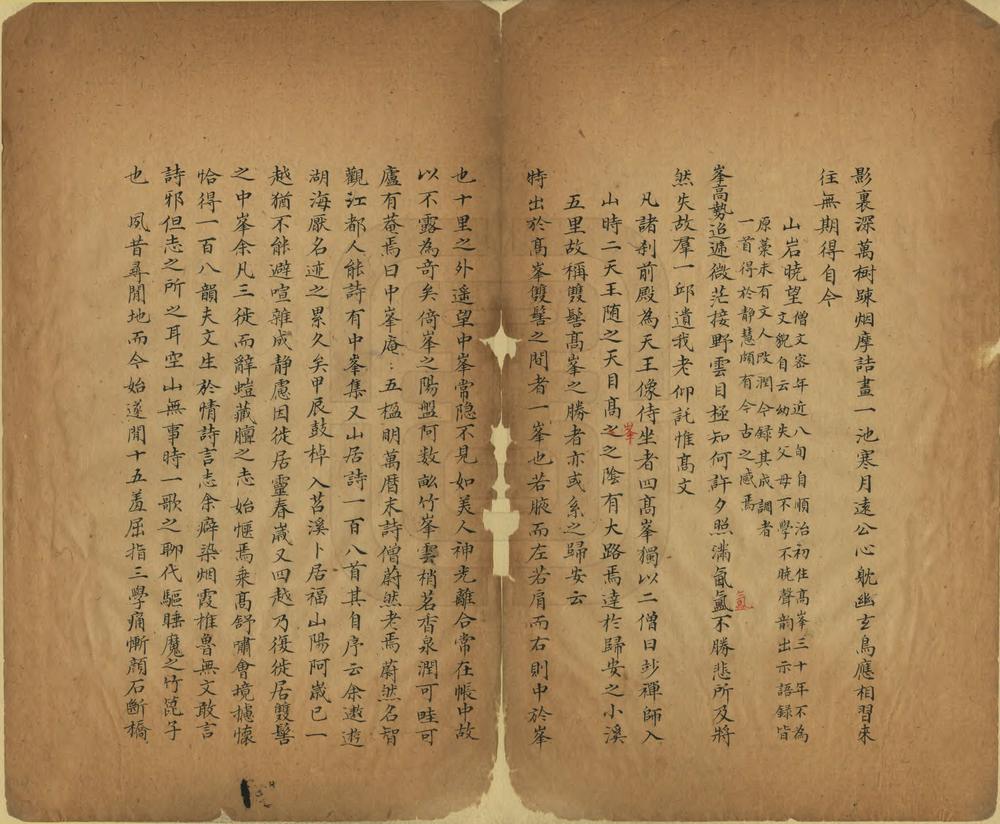 影裏深萬樹踈烟摩詰畫一池寒月遠公心躭幽玄鳥應相習來
往無期得自今
山岩曉望僧文容年近八旬自順治初住髙峯三十年不為
文貌自云幼失父母不學不曉聲韵出示語録皆
原藁未有文人改潤今録其成調者
一首得於静慧頗有今古之感焉
峯高勢迢遞微茫接野雲目極知何許夕照滿氤氳不勝悲所及將
氳
然失故羣一邱遺我老仰託惟髙文
凡諸刹前殿為天王像侍坐者四髙峯獨以二僧曰妙禪師入
山時二天王随之天目髙之之陰有大路焉達於歸安之小溪
峯
五里故稱雙髻髙峯之勝者亦或系之歸安云
特出於髙峯雙髻之間者一峯也若腋而左若肩而右則中於峯
也十里之外遥望中峯常隐不見如美人神光離合常在帳中故
以不露為竒矣倚峯之陽盤阿数畝竹峯雲梢茗杳泉潤可畦可
廬有菴焉曰中峯庵五楹明萬曆末詩僧蔚然老焉蔚然名智
觀江都人能詩有中峯集又山居詩一百八首其自序云余遨遊
湖海厭名迹之累久矣甲辰鼓棹入苕溪卜居福山陽阿嵗已一
越猶不能避喧雜成静慮因徙居靈春嵗又四越乃復徙居雙髻
之中峯余凡三徙而辭螘藏膻之志始愜焉乘髙舒嘯會境攄懷
恰得一百八韻夫文生於情詩言志余癖染烟霞椎魯無文敢言
詩邪但志之所之耳空山無事時一歌之聊代驅睡魔之竹篦子
也 夙昔尋閒地而今始遂閒十五羞屈指三學痛慚顔石斷橋